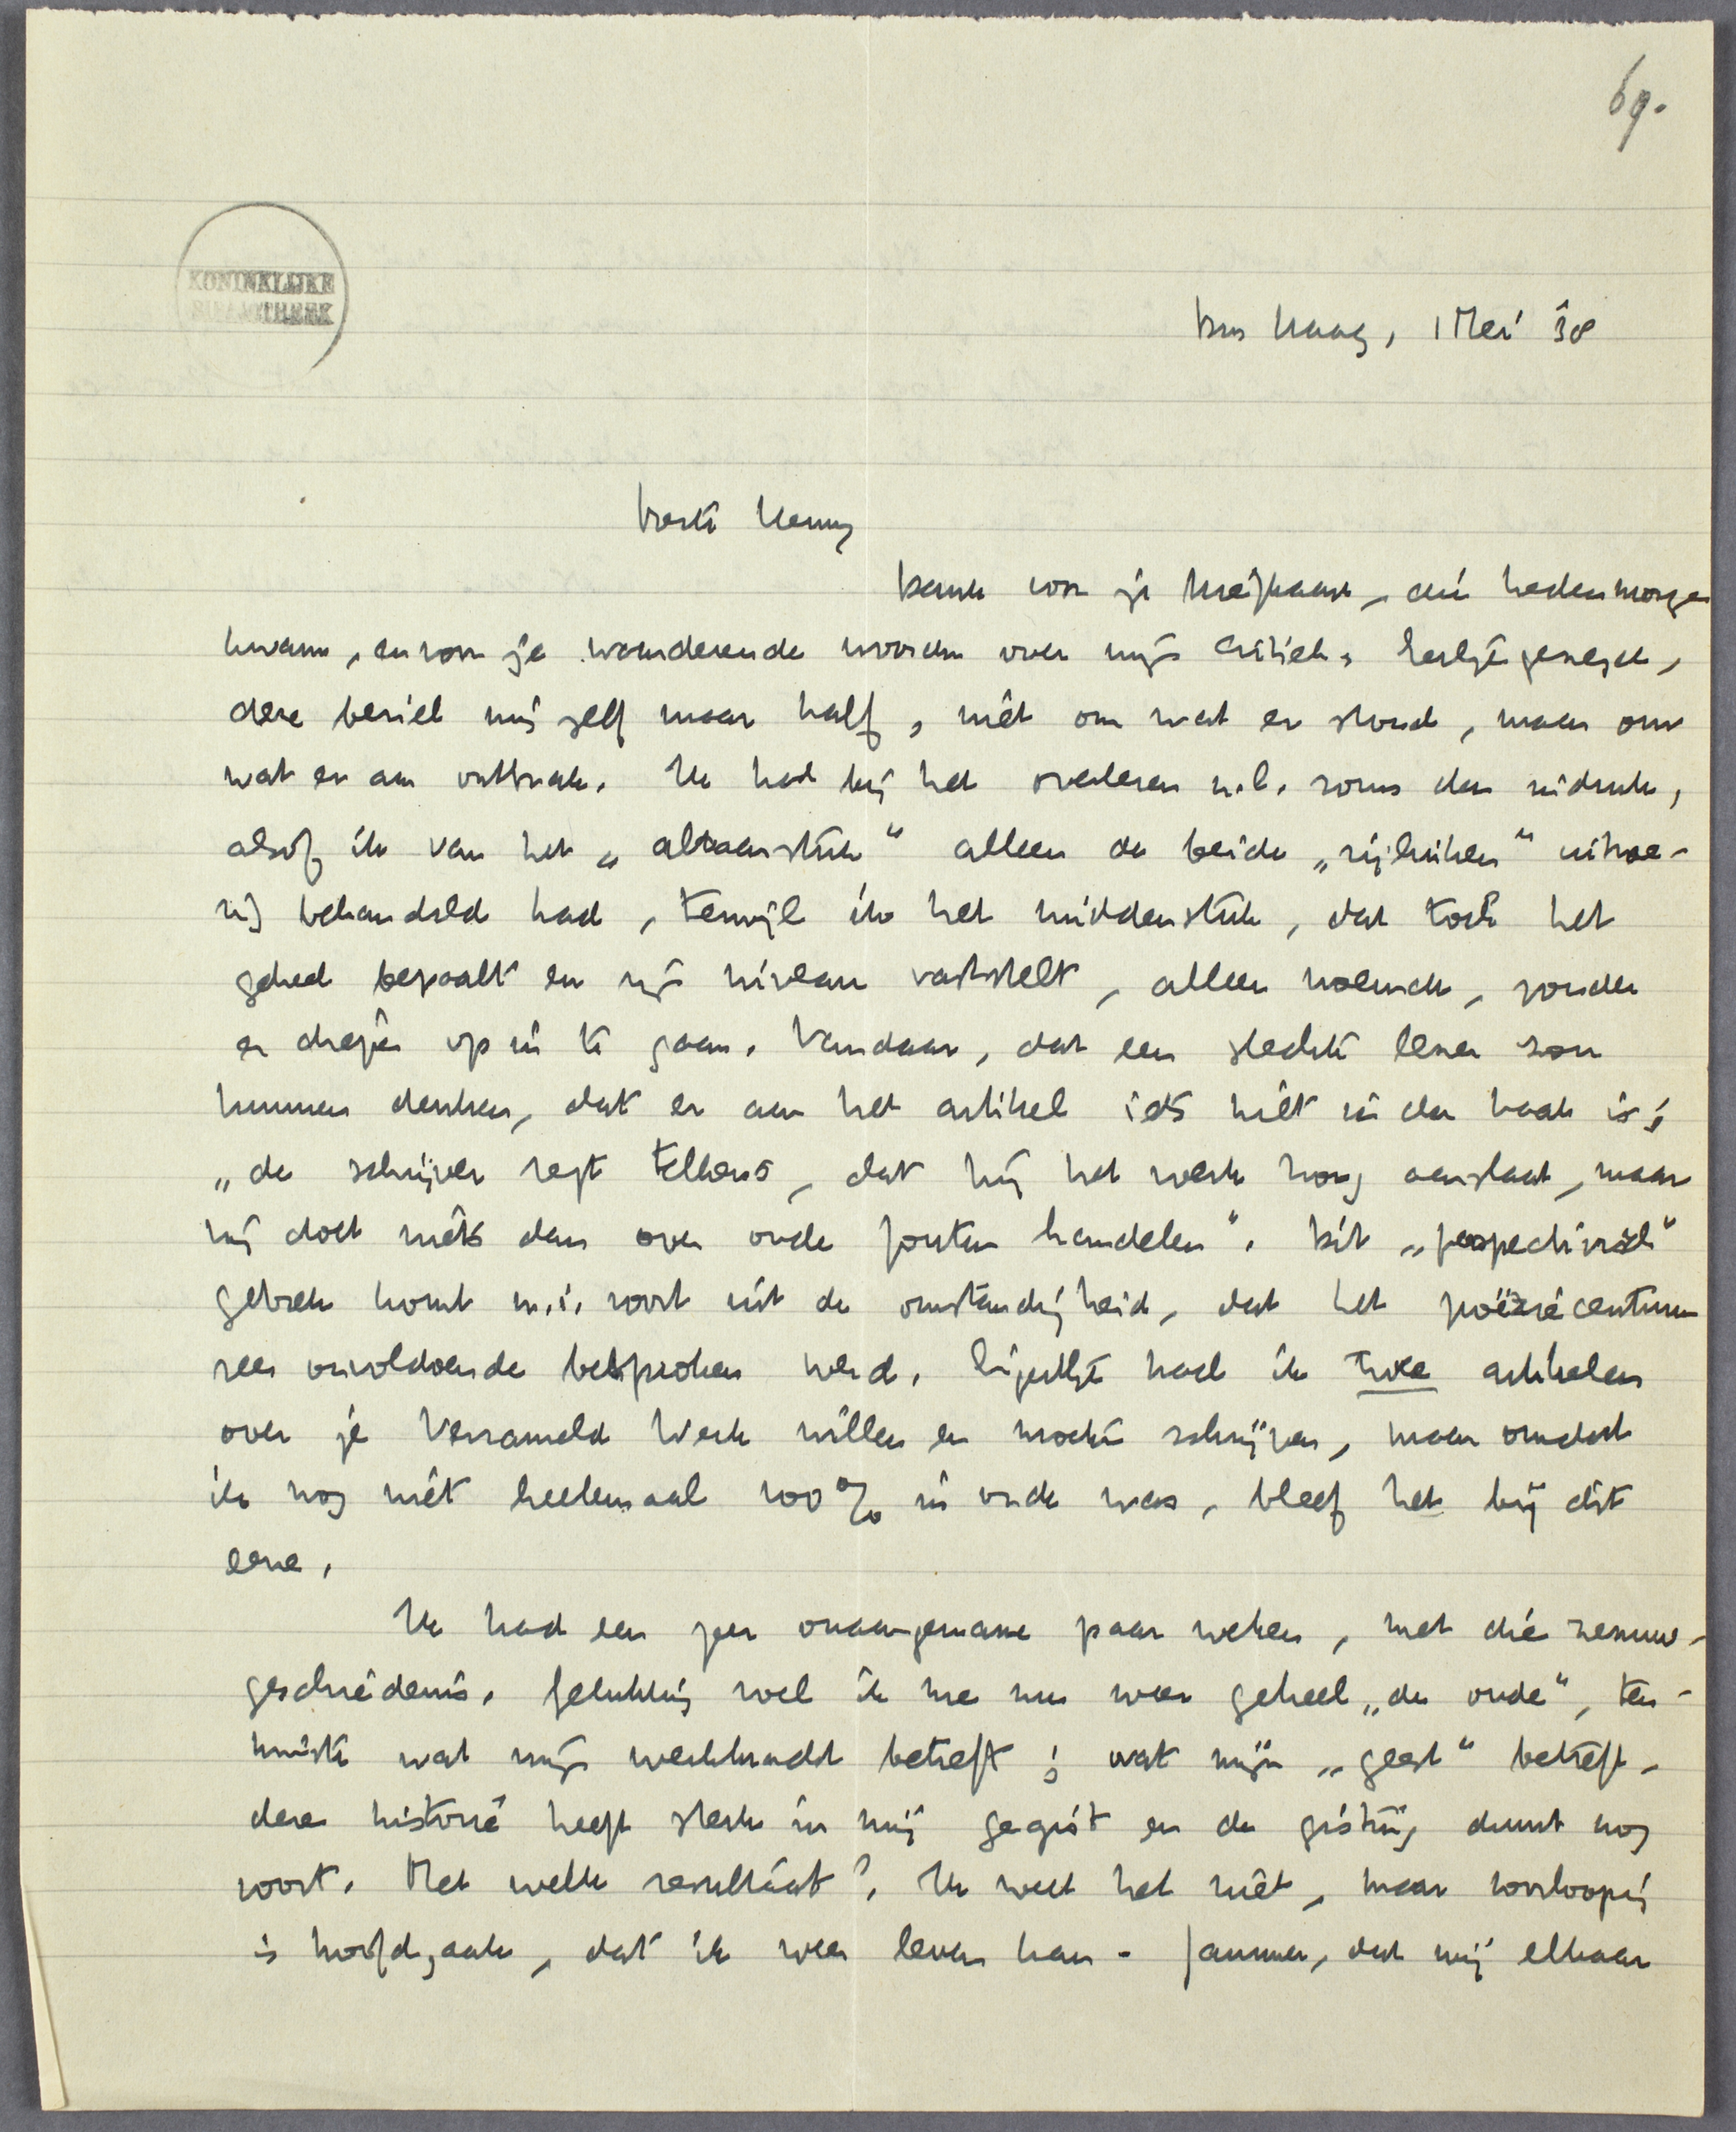 69.
KONINKLIJKE
BIBLIOTHEEK
Den Haag, 1 Mei '38
Beste Henny
Dank voor je briefkaart, die hedenmorgen
kwam, en voor je waardeerende woorden over mijn critiek. Eerlijk gezegd,
deze beviel mij zelf maar half, niet om wat er stond, maar om
wat er aan ontbrak. Ik had bij het overlezen n.l. soms den indruk,
alsof ik van het „altaarstuk" alleen de beide „zijluiken" uitvoe-
rig behandeld had, terwijl ik het middenstuk, dat toch het
geheel bepaalt en zijn niveau vaststelt, alleen noemde, zonder
er dieper op in te gaan. Vandaar, dat een slechte lezer zou
kunnen denken, dat er aan het artikel iets niet in den haak is;
„de schrijver zegt telkens, dat hij het werk hoog aanslaat, maar
hij doet niets dan over oude fouten handelen". Dit „perspectivisch"
gebrek komt m.i. voort uit de omstandigheid, dat het poëziecentrum
zeer onvoldoende besproken werd. Eigenlijk had ik twee artikelen
over je Verzameld Werk willen en moeten schrijven, maar omdat
ik nog niet heelemaal 100% in orde was, bleef het bij dit
eene.
Ik had een zeer onaangename paar weken, met die zenuw-
geschiedenis. Gelukkig voel ik me nu weer geheel „de oude", ten-
minste wat mijn werkkracht betreft; wat mijn „geest" betreft,
deze historie heeft sterk in mij gegist en de gisting duurt nog
voort. Met welk resultaat? Ik weet het niet, maar voorloopig
is hoofdzaak, dat ik weer leven kan. Jammer, dat wij elkaar